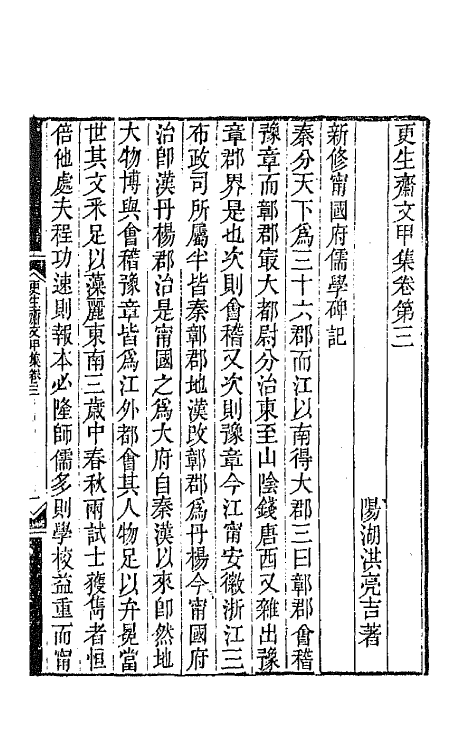 更生齋文甲集卷第三
陽湖洪亮吉著
新修甯國府儒學碑記
秦分天下爲三十六郡而江以南得大郡三曰鄣郡會稽
豫章而鄣郡㝡大都尉分治東至山陰錢唐西又雜出豫
章郡界是也次則會稽又次則豫章今江甯安徽浙江三
布政司所屬半皆秦鄣郡地漢改鄣郡爲丹楊今甯國府
治卽漢丹楊郡治是甯國之爲大府自秦漢以來卽然地
大物博與會稽豫章皆爲江外都會其人物足以弁冕當
世其文釆足以藻麗東南三歲中春秋兩試士獲雋者恒
倍他處夫程功速則報本必隆師儒多則學校益重而甯
更生齋文甲集卷三
一